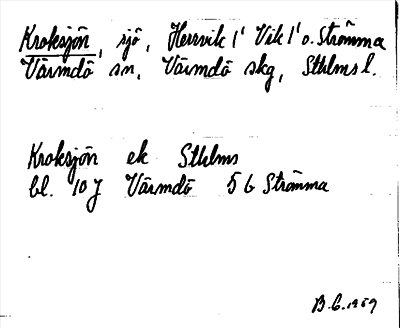 Kroksjön, sjö, Herrvik 1' Vik 1' o. Strömma
Värmdö sn, Värmdö skg, Sthlms l.
Kroksjön ek Sthlms
bl. 10 J Värmdö 5 b Strömma
B.G. 1959